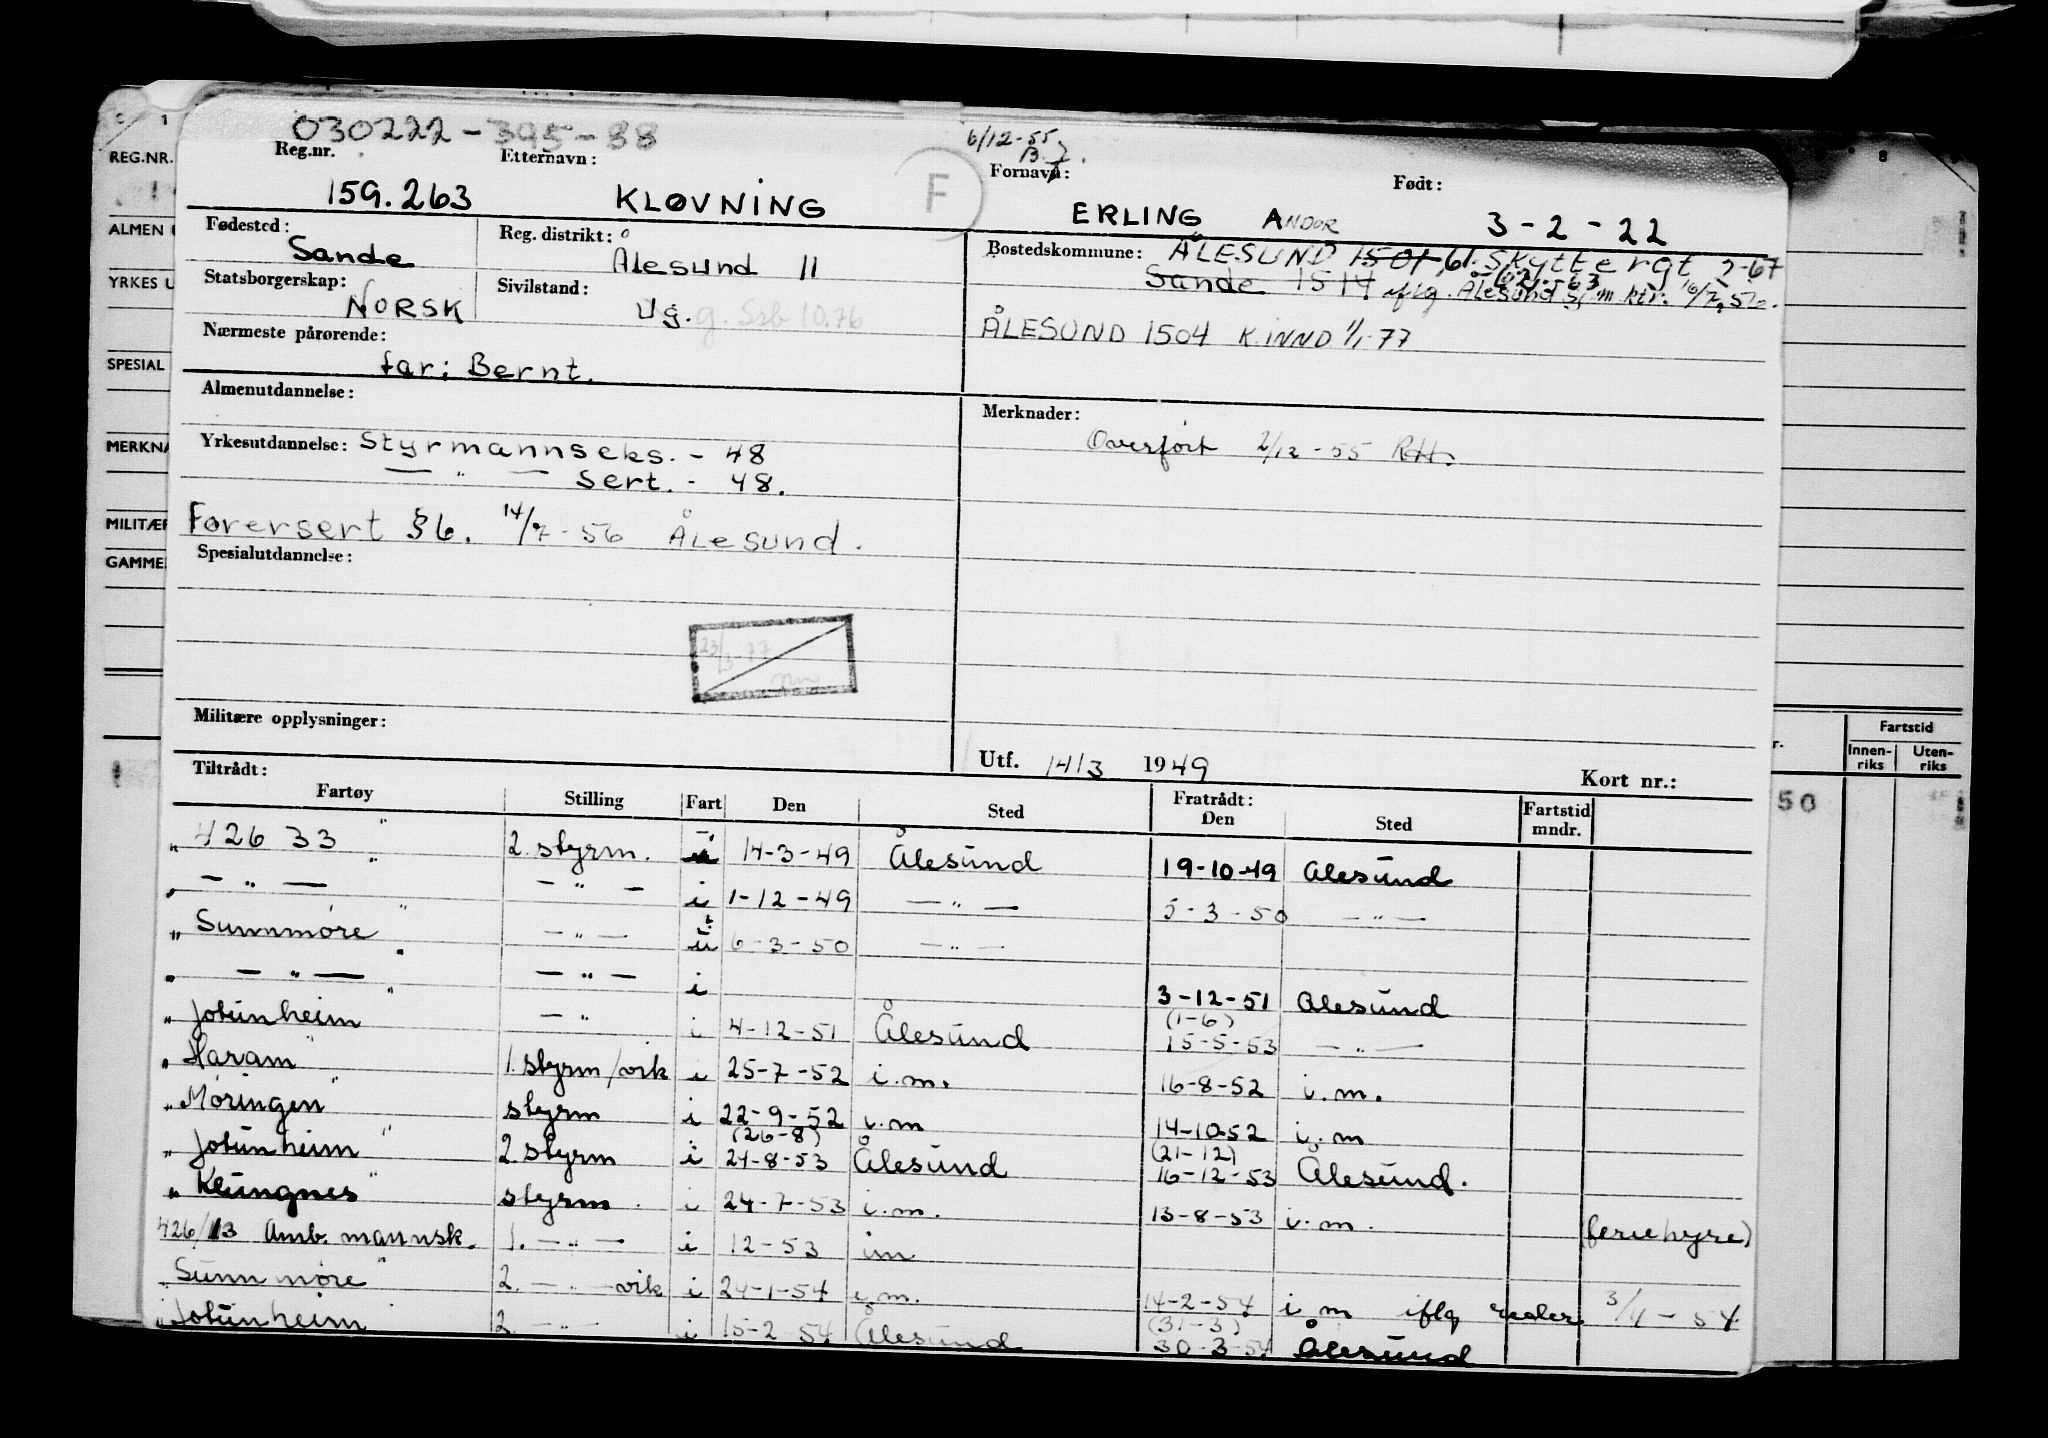 030222-395-88
6/12-55
Reg.nr. Etternavn: F Fornavn: Født:
159.263 KLØVNING ERLING ANDOR 3-2-22
Fødested: Reg. distrikt: Bostedskommune: ÅLESUND 1501, 61. Skyttergt 2-67
Sande Ålesund 11 Sande 1514 iflg. Ålesund
Statsborgerskap: Sivilstand:
NORSK Ug. g. Ssb 10.76 ÅLESUND 1504 K.INND 1/1-77
Nærmeste pårørende:
far: Bernt.
Almenutdannelse: Merknader:
Yrkesutdannelse: Styrmannseks. - 48 Overført 2/12-55 RH.
— " — Sert. - 48.
Førersert §6. 14/7-56 Ålesund.
Spesialutdannelse:
Militære opplysninger:
Utf. 14/3 1949 Kort nr.:
Tiltrådt: Fratrådt:
Fartøy Stilling Fart Den Sted Den Sted Fartstid mndr.
" 426 33 " 2. styrm. 14-3-49 Ålesund 19-10-49 Ålesund
" — " — " — " — i 1-12-49 — " — 5-3-50 — " —
" Sunnmøre " — " — 6-3-50 — " —
" — " — " — " — i 3-12-51 Ålesund
(1-6)
" Jotunheim " — " i 4-12-51 Ålesund 15-5-53 — " —
" Haram " 1. styrm/vik i 25-7-52 i.m. 16-8-52 i.m.
" Møringen " styrm i 22-9-52 i.m 14-10-52 i.m
(26-8) (21-12)
" Jotunheim " 2 styrm i 24-8-53 Ålesund 16-12-53 Ålesund.
" Klungnes " styrm i 24-7-53 i.m. 13-8-53 i.m. (feriehyre)
426/13 Amb. mannsk. 1. — " — i 12-53 im
" Sunnmøre " 2. — " — vik i 24-1-54 i.m. 14-2-54 i m iflg reder 3/4-54
(31-3)
" Jotunheim 2. — " — i 15-2 54 Ålesund 30-3-54 Ålesund
REG.NR.
ALMEN
YRKES U
SPESIAL
MERKNA
MILITÆR
GAMMEL
Fartstid
Innen-riks Uten-riks
50